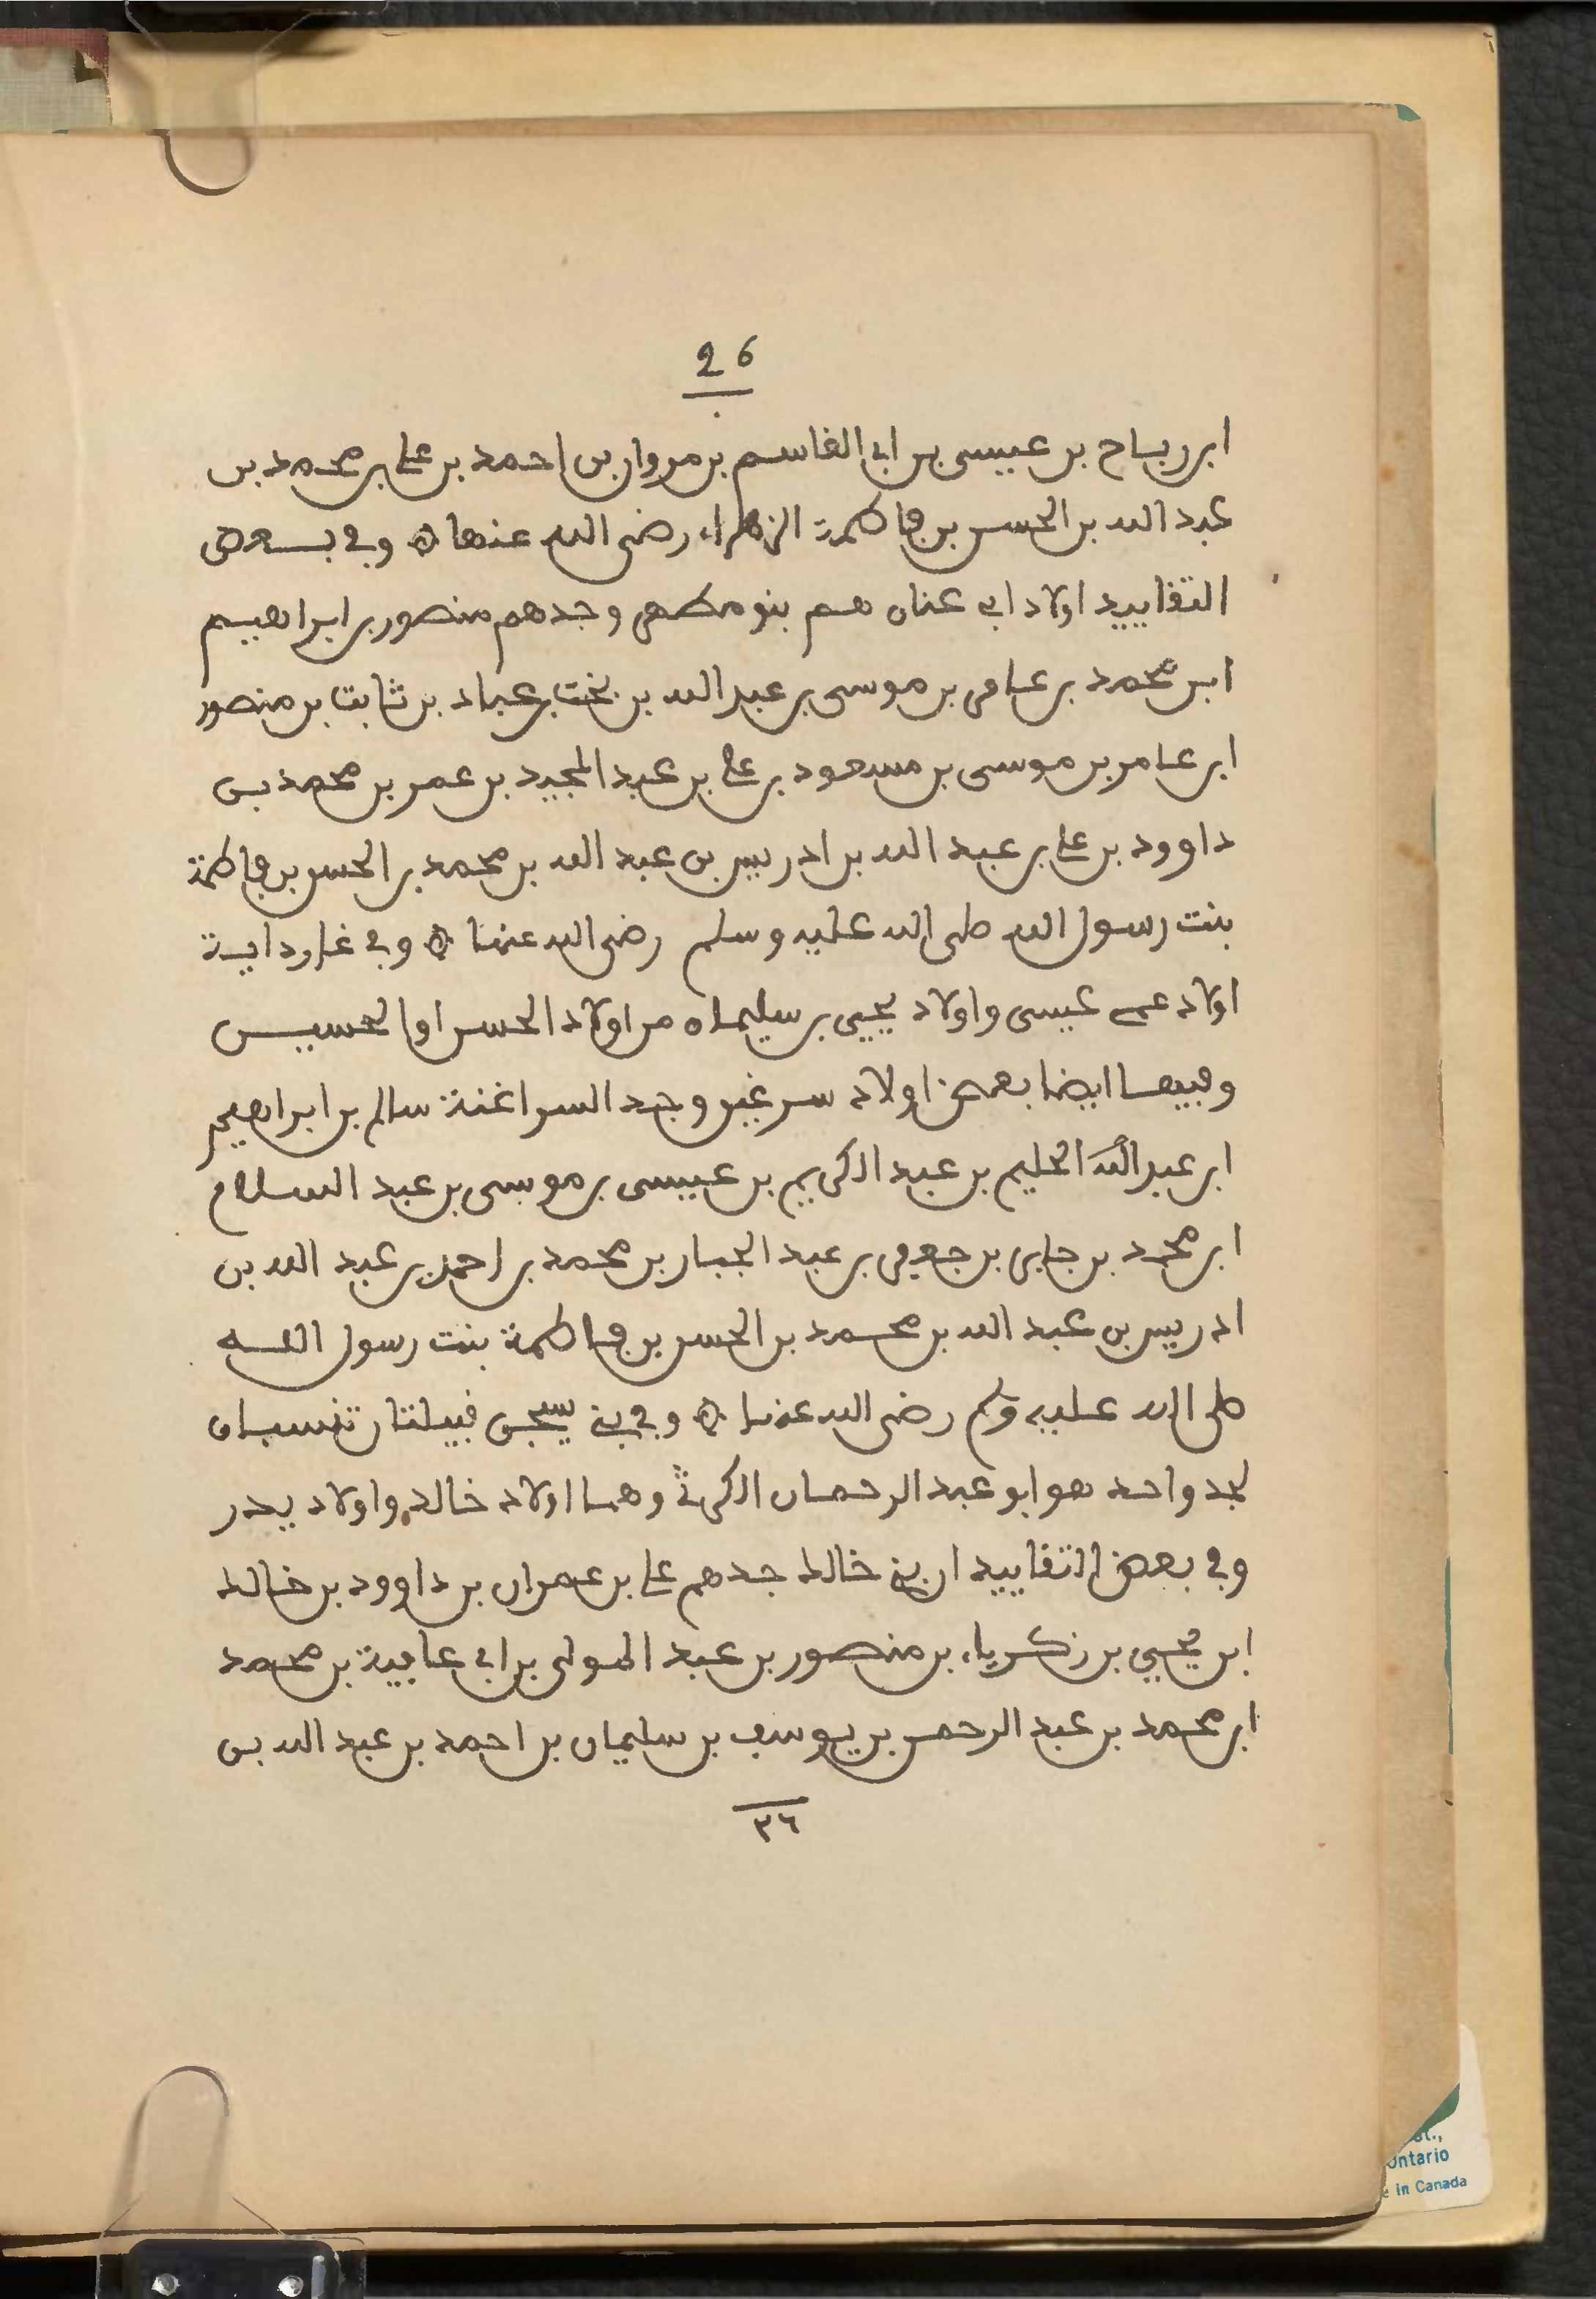 26
ابن رباح بن عيسى بن ابي القاسم بن مروان بن احمد بن علي بن محمد بن
عبد الله بن الحسن بن فاطمة الزهراء رضى الله عنها ۞ وفي بعض
التقاييد اولاد ابي عنان هم بنو مطهر وجدهم منصور بن ابراهيم
ابن محمد بن عامر بن موسى بن عبد الله بن بخت بن عباد بن ثابت بن منصور
ابن عامر بن موسى بن مسعود بن علي بن عبد المجيد بن عمر بن محمد بن
داوود بن علي بن عبد الله بن ادريس بن عبد الله بن محمد بن الحسن بن فاطمة
بنت رسول الله صلى الله عليه وسلم رضى الله عنها ۞ وفي غارداية
اولاد عمى عيسى واولاد يحيى بن سليمان من اولاد الحسن او الحسين
وفيها ايضا بعض اولاد سرغين وجد السراغنة سالم بن ابراهيم
ابن عبد الله الحليم بن عبد الكريم بن عيسى بن موسى بن عبد السلام
ابن محمد بن جابر بن جعفر بن عبد الجبار بن محمد بن احمد بن عبد الله بن
ادريس بن عبد الله بن محمد بن الحسن بن فاطمة بنت رسول الله
صلى الله عليه وسلم رضى الله عنها ۞ وفي بني يسجن قبيلتان تنسبان
لجد واحد هو ابو عبد الرحمان الكرثي وهما اولاد خالد واولاد يدر
وفي بعض التقاييد ان بني خالد جدهم علي بن عمران بن داوود بن خالد
ابن يحيى بن زكرياء بن منصور بن عبد المولى بن ابي عافية بن محمد
ابن محمد بن عبد الرحمن بن يوسف بن سليمان بن احمد بن عبد الله بن
٢٦
ontario
in Canada